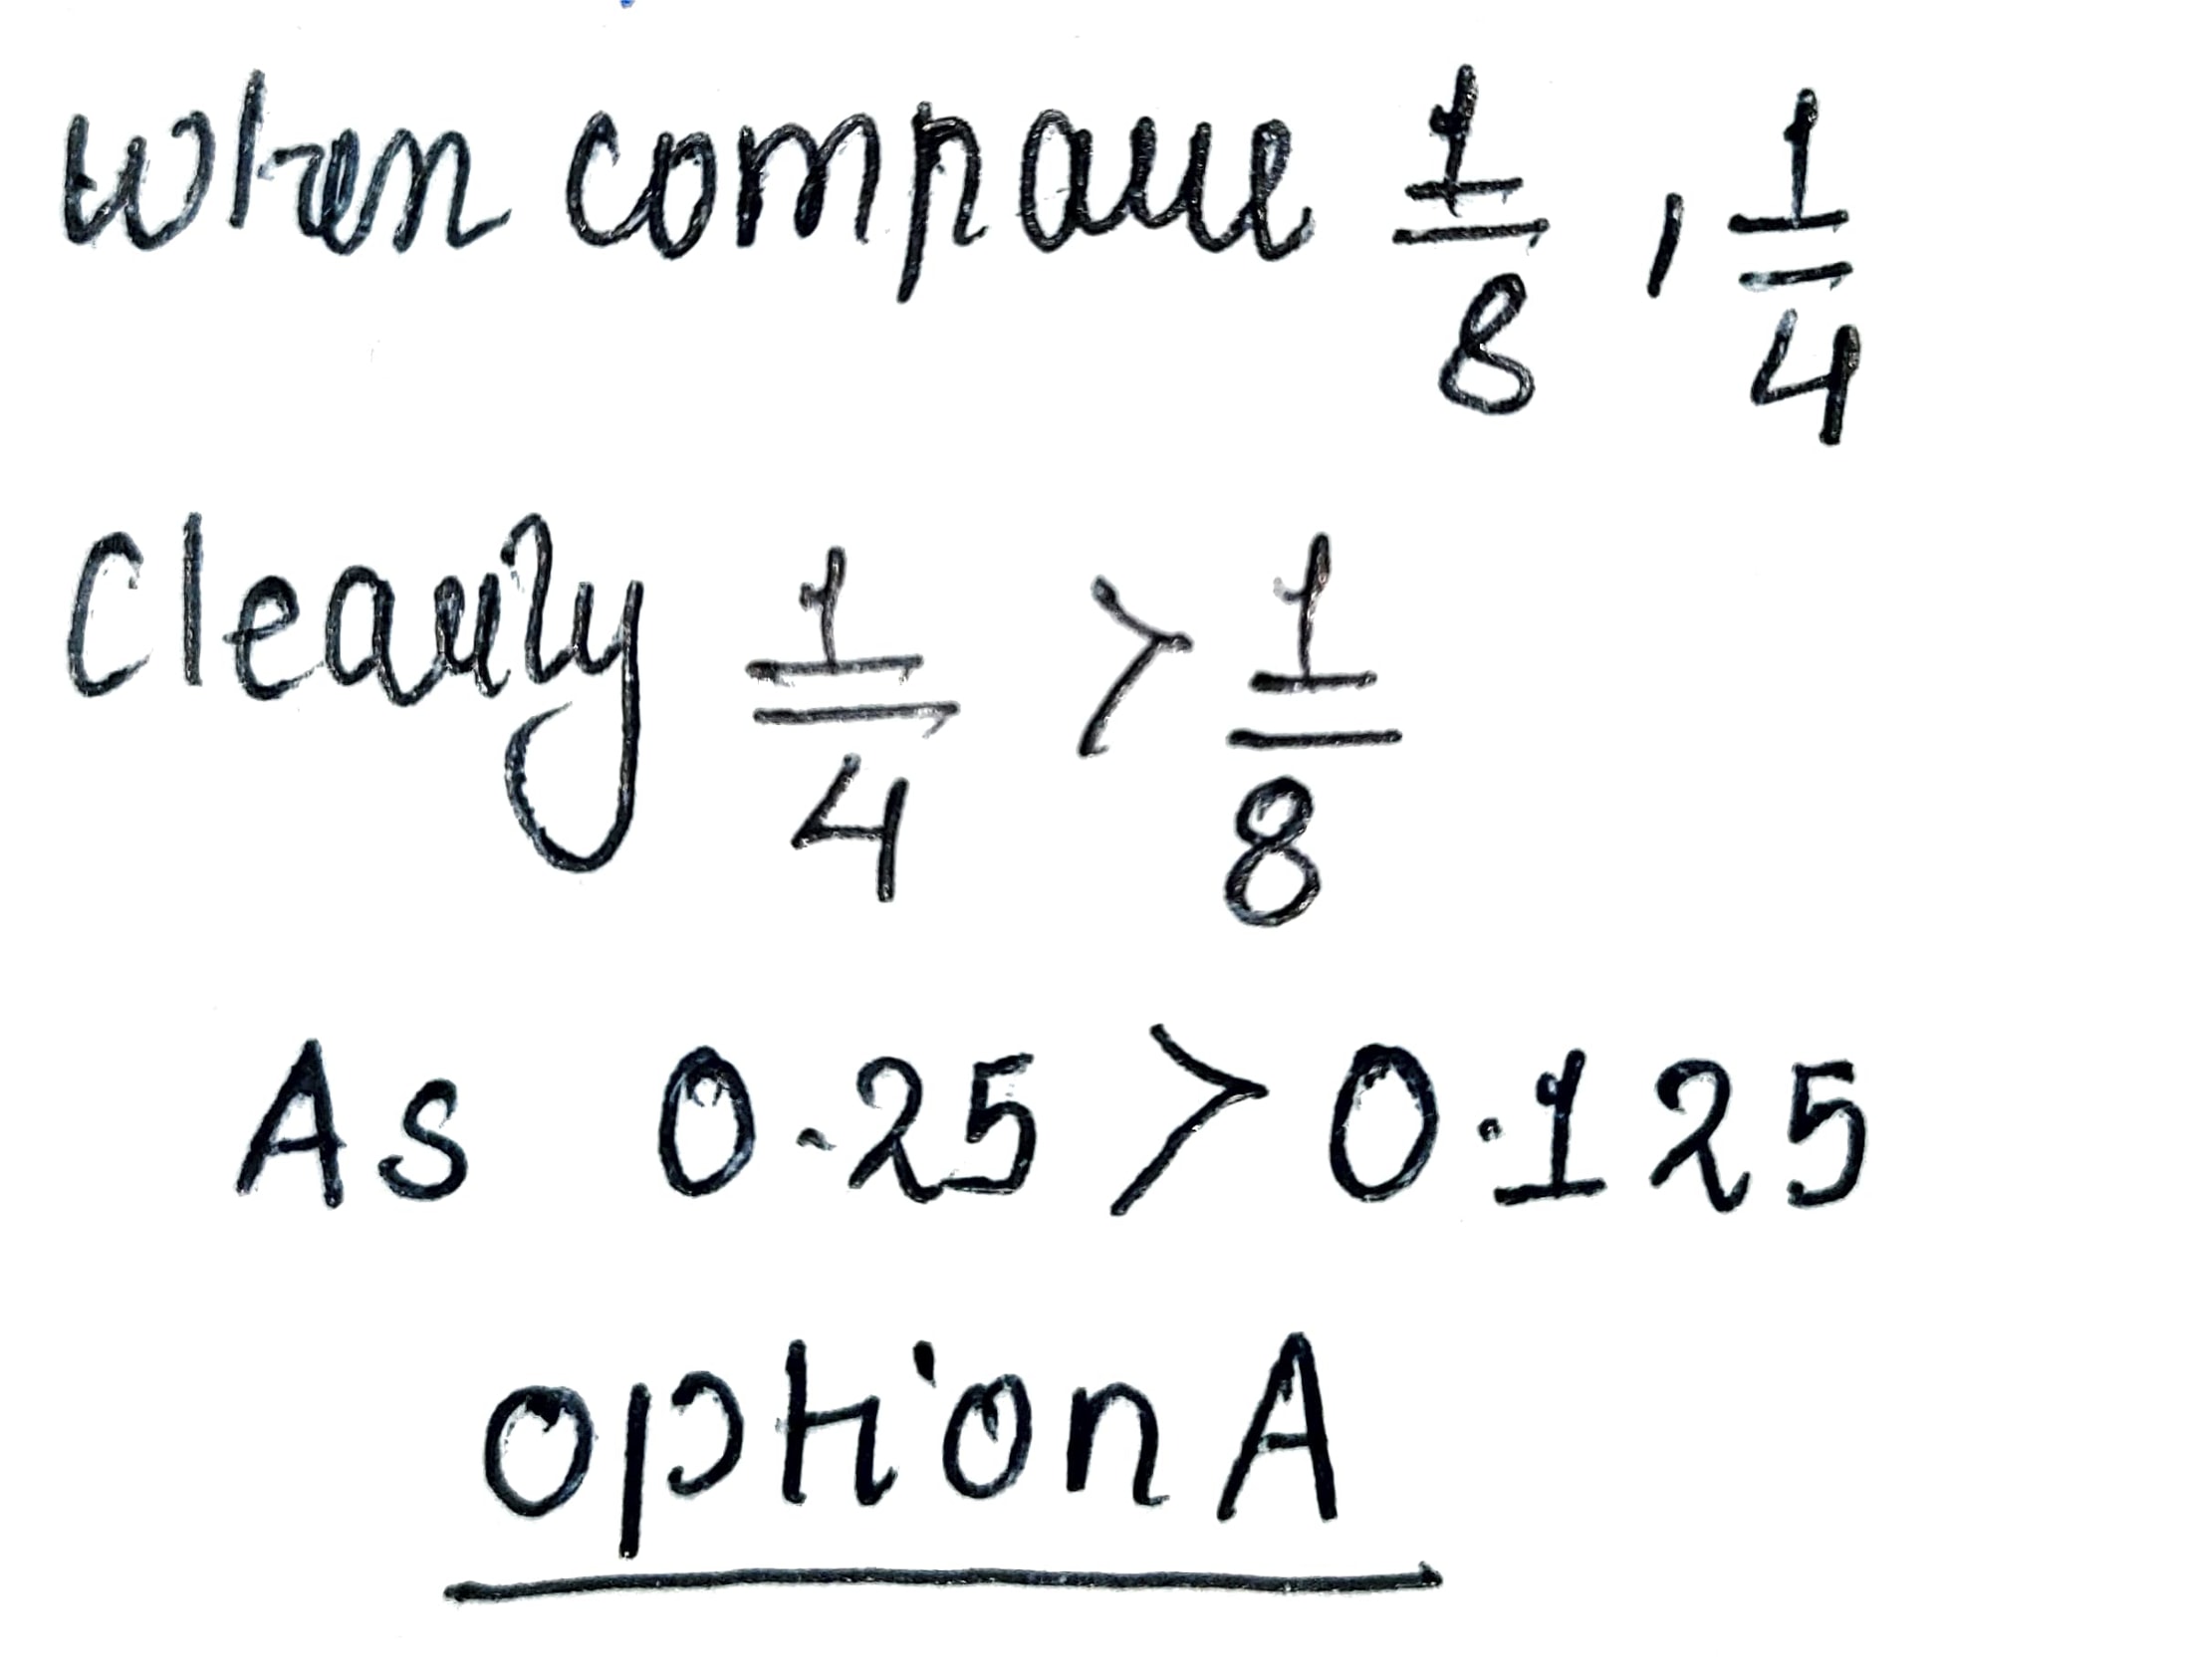 When compare 1/8 , 1/4
Clearly 1/4 > 1/8
As 0.25 > 0.125
option A